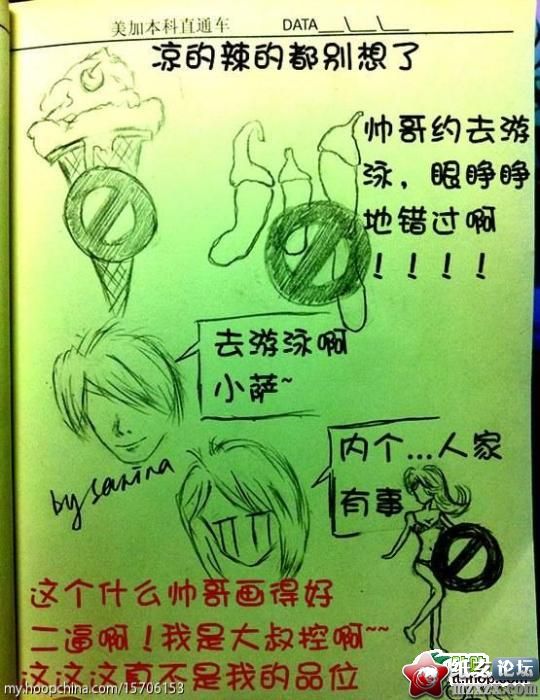 美加本科直通车 DATA__\__\__
凉的辣的都别想了
帅哥约去游
泳，眼睁睁
地错过啊
！！！！
去游泳啊
小萨~
内个...人家
有事
by sanina
这个什么帅哥画得好
二逼啊！我是大叔控啊~~
这这这真不是我的品位
myhoopchina.com/15706153
论坛
mzxzx.com